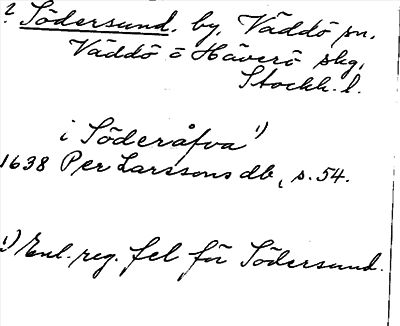 ? Södersund. by, Väddö sn,
Väddö o Häverö skg,
Stockh. l.
i Söderåfva 1)
1638 Per Larssons db, s. 54.
1) Enl. reg. fel för Södersund.